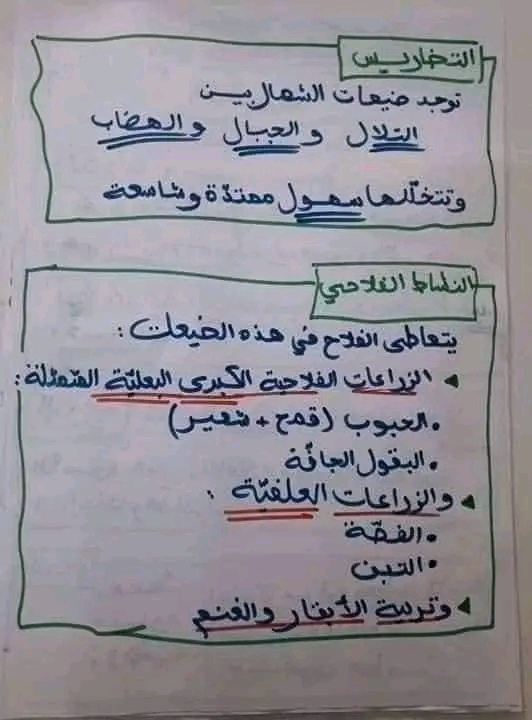 التضاريس
توجد ضيعات الشمال بين
التلال والجبال والهضاب
وتتخلّلها سهول ممتدّة وشاسعة
النشاط الفلاحي
يتعاطى الفلاح في هذه الضيعات:
الزراعات الفلاحية الكبرى البعليّة المتمثلة:
• الحبوب (قمح + شعير)
• البقول الجافّة
والزراعات العلفيّة:
• الفصّة
• التبن
وتربية الأبقار والغنم